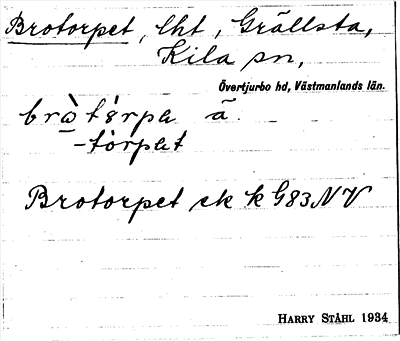 Brotorpet, lht, Grällsta,
Kila sn,
Övertjurbo hd, Västmanlands län.
-tòrpet
Brotorpet ek k G83NV
HARRY STÅHL 1934